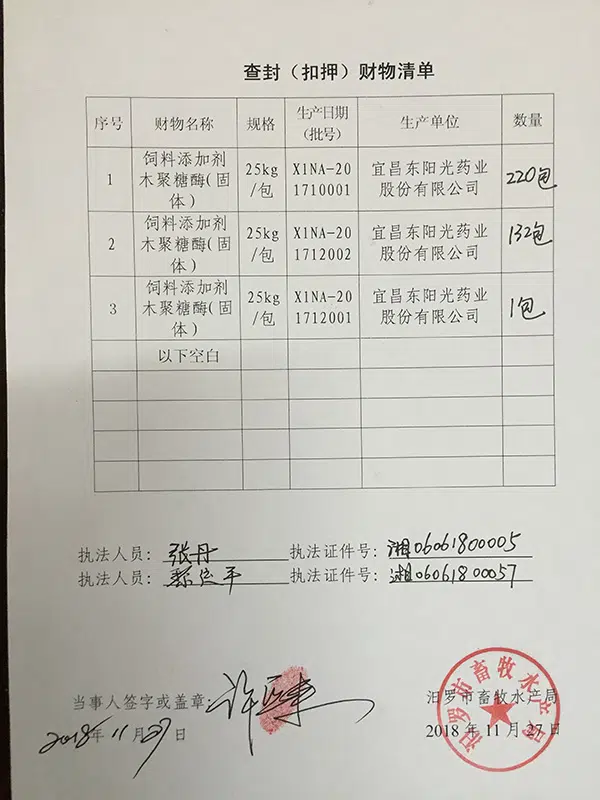 查封（扣押）财物清单
序号 财物名称 规格 生产日期（批号） 生产单位 数量
1 饲料添加剂木聚糖酶(固体) 25kg/包 X1NA-201710001 宜昌东阳光药业股份有限公司 220包
2 饲料添加剂木聚糖酶(固体) 25kg/包 X1NA-201712002 宜昌东阳光药业股份有限公司 132包
3 饲料添加剂木聚糖酶(固体) 25kg/包 X1NA-201712001 宜昌东阳光药业股份有限公司 1包
以下空白
执法人员：张丹 执法证件号：湘06061800005
执法人员： 执法证件号：湘06061800057
当事人签字或盖章：许 汨罗市畜牧水产局
2018年11月27日 2018年11月27日
汨罗市畜牧水产局